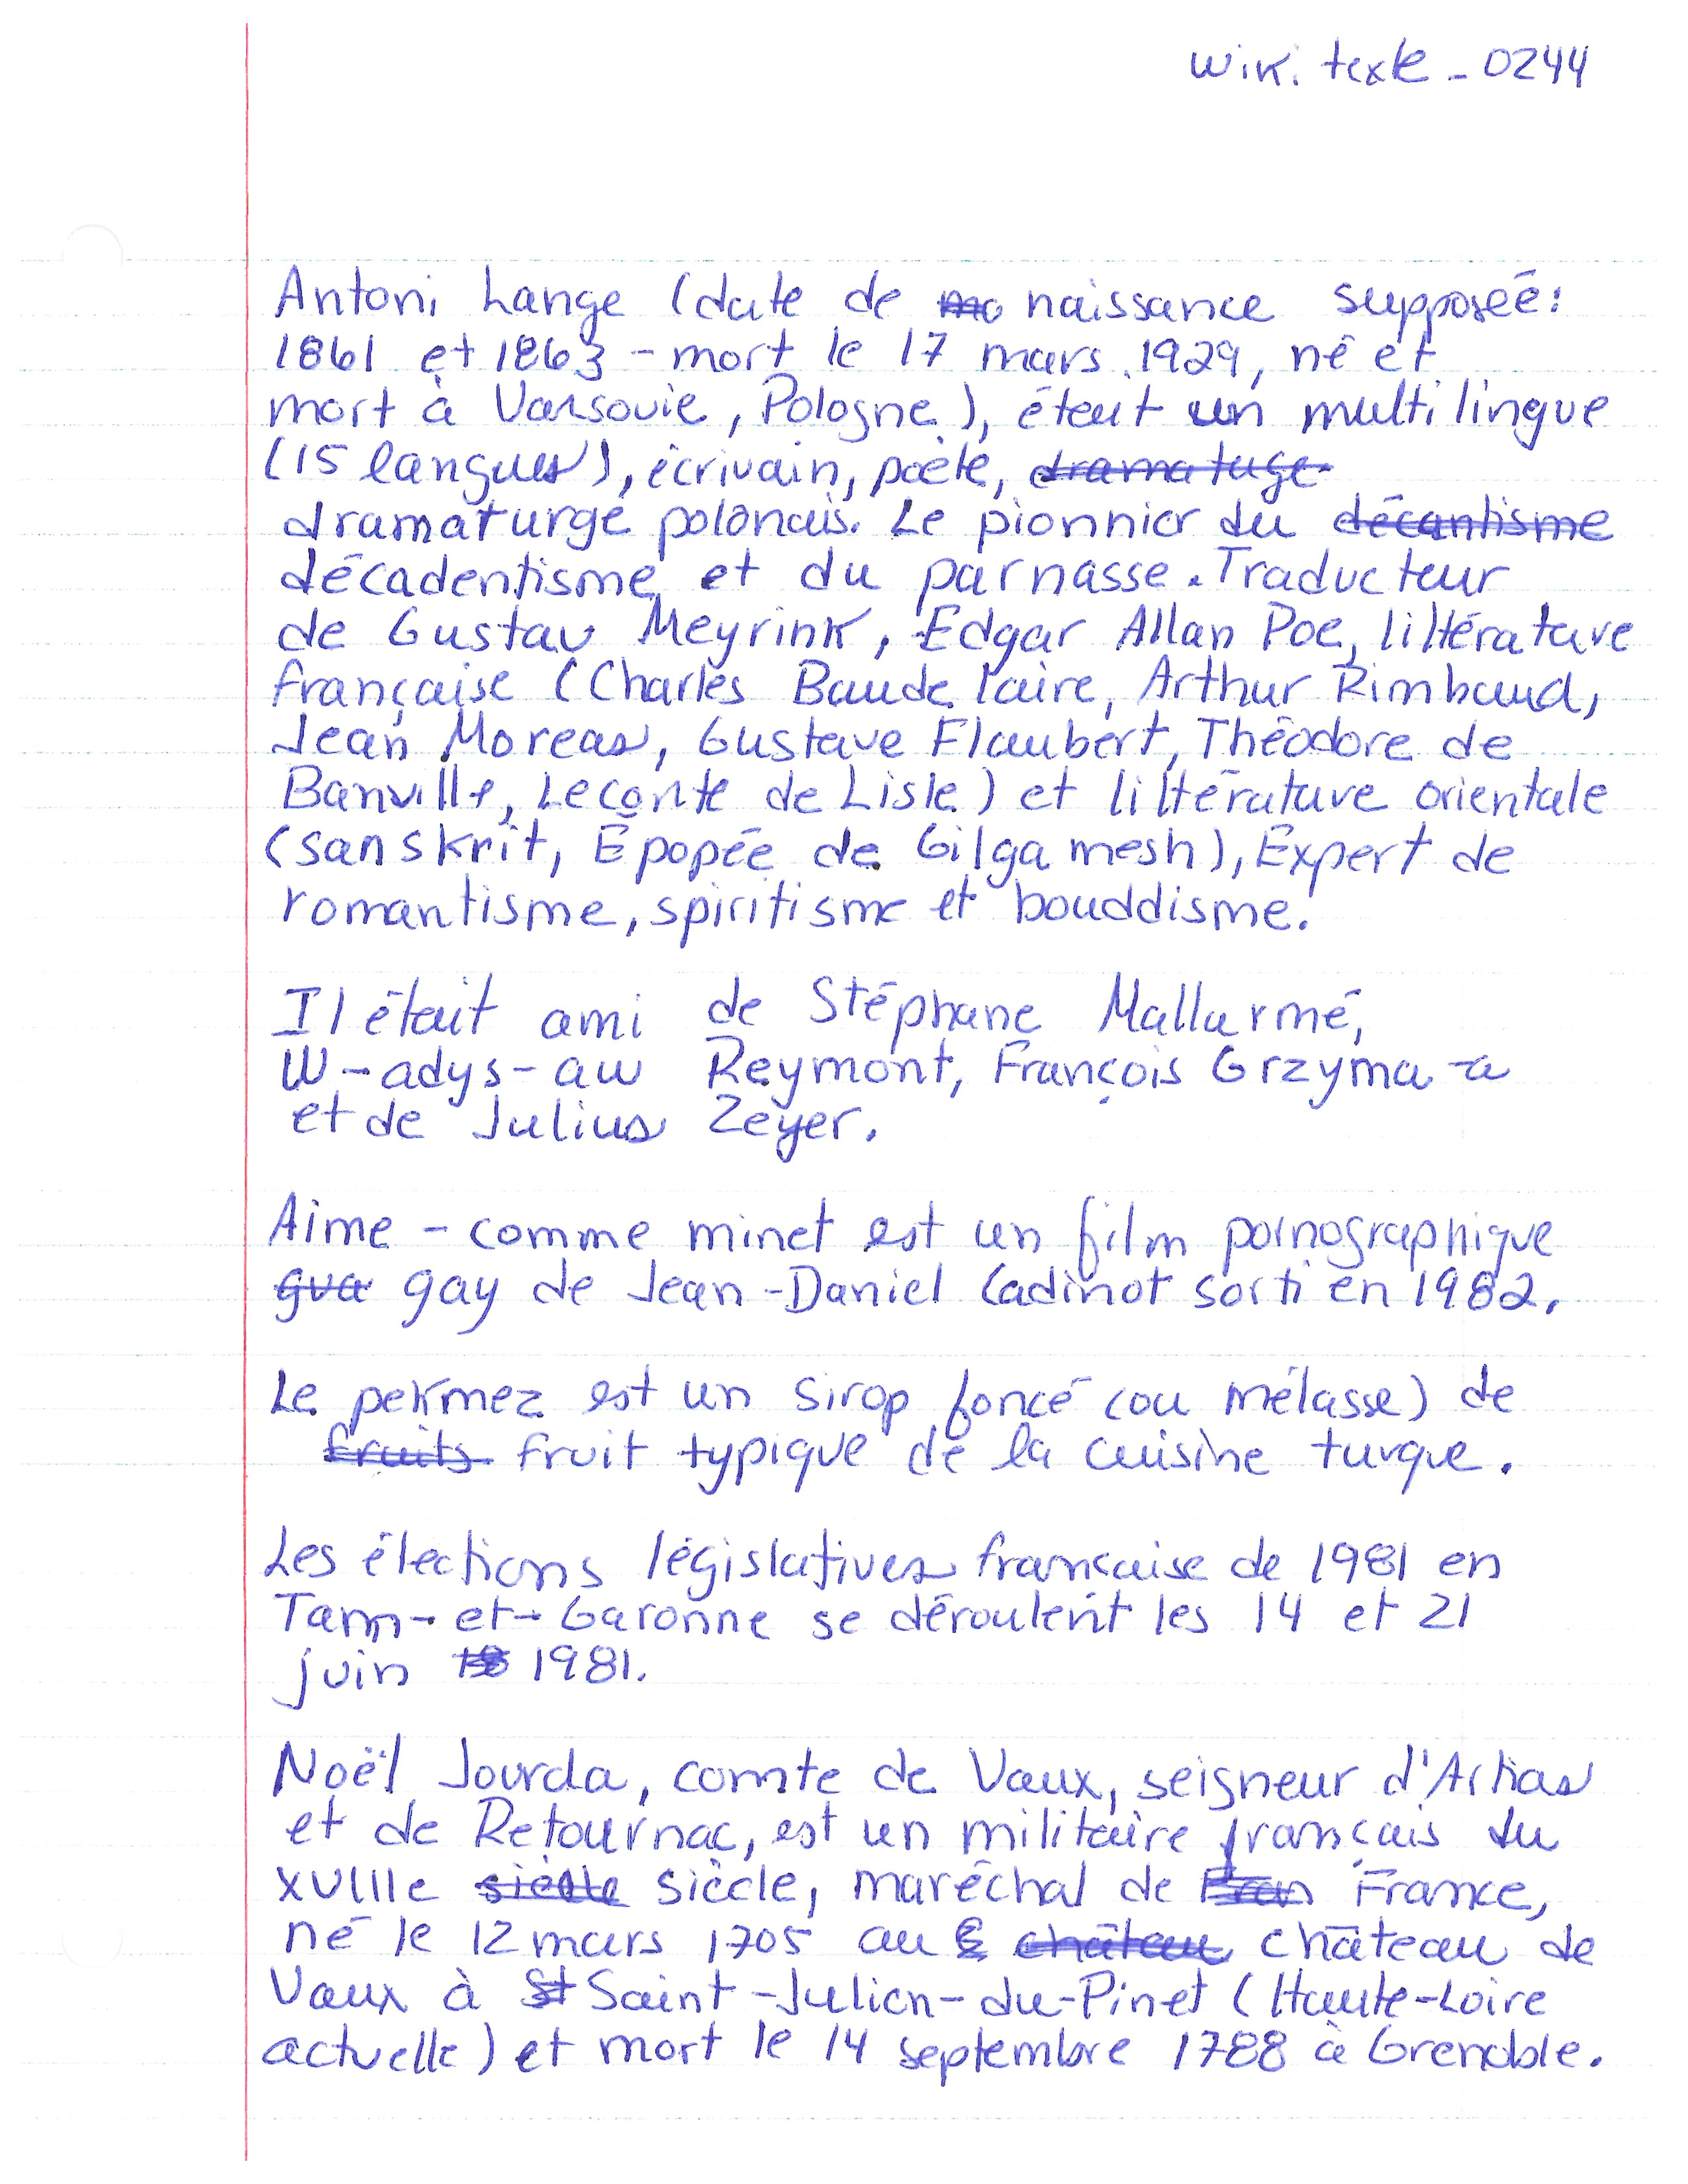 Wiki texte - 0244
Antoni Lange (date de mo naissance supposée:
1861 et 1863 - mort le 17 mars 1929, né et
mort à Varsovie, Pologne), était un multilingue
(15 langues), écrivain, poète, dramatuge
dramaturge polonais. Le pionnier du décantisme
décadentisme et du parnasse. Traducteur
de Gustav Meyrink, Edgar Allan Poe, littérature
française (Charles Baudelaire, Arthur Rimbaud,
Jean Moreas, Gustave Flaubert, Théodore de
Banville, Leconte de Lisle) et littérature orientale
(sanskrit, Épopée de Gilgamesh), Expert de
romantisme, spiritisme et bouddisme.
Il était ami de Stéphane Mallarmé,
W-adys-aw Reymont, François Grzyma-a
et de Julius Zeyer.
Aime - comme minet est un film pornographique
gua gay de Jean-Daniel Cadinot sorti en 1982.
Le pekmez est un sirop foncé (ou mélasse) de
fruits fruit typique de la cuisine turque.
Les élections législatives française de 1981 en
Tarn-et-Garonne se déroulent les 14 et 21
juin 18 1981.
Noël Jourda, comte de Vaux, seigneur d'Artias
et de Retournac, est un militaire français du
XVIIIe siècle siècle, maréchal de Fran France,
né le 12 mars 1705 au château château de
Vaux à St Saint-Julien-du-Pinet (Haute-Loire
actuelle) et mort le 14 septembre 1788 à Grenoble.